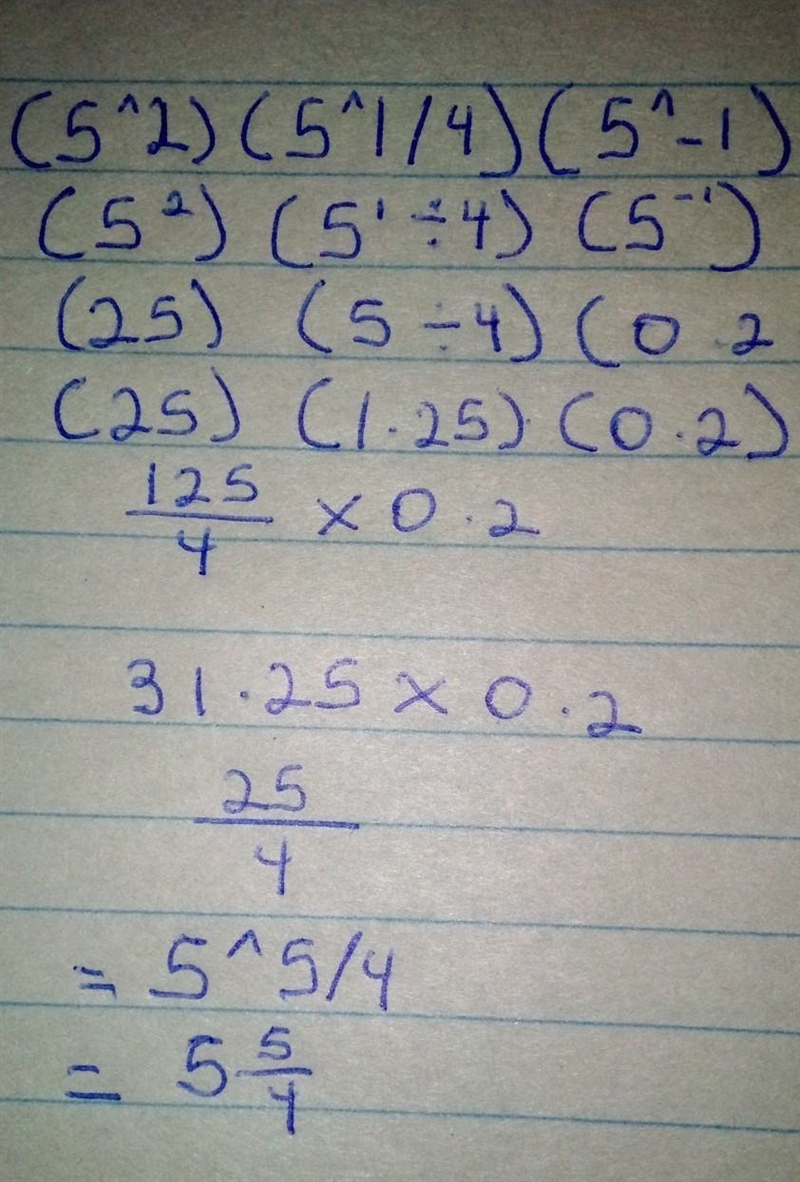 (5^2) (5^1/4) (5^-1)
(5²) (5¹ ÷ 4) (5⁻¹)
(25) (5 ÷ 4) (0.2
(25) (1.25) (0.2)
125/4 × 0.2
31.25 × 0.2
25/4
= 5^5/4
= 5 5/4